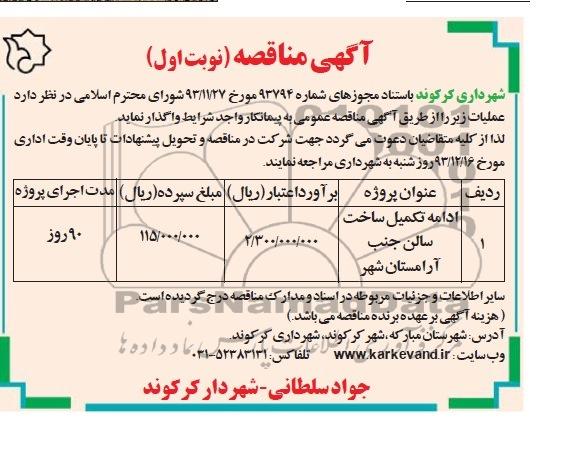 آگهی مناقصه (نوبت اول)
شهرداری کرکوند باستناد مجوزهای شماره ۹۳۷۹۴ مورخ ۹۳/۱۱/۲۷ شورای محترم اسلامی در نظر دارد
عملیات زیر را از طریق آگهی مناقصه عمومی به پیمانکار واجد شرایط واگذار نماید.
لذا از کلیه متقاضیان دعوت می گردد جهت شرکت در مناقصه و تحویل پیشنهادات تا پایان وقت اداری
مورخ ۹۳/۱۲/۱۶ روز شنبه به شهرداری مراجعه نمایند.
ردیف عنوان پروژه برآورد اعتبار (ریال) مبلغ سپرده (ریال) مدت اجرای پروژه
۱ ادامه تکمیل ساخت سالن جنب آرامستان شهر ۲/۳۰۰/۰۰۰/۰۰۰ ۱۱۵/۰۰۰/۰۰۰ ۹۰ روز
سایر اطلاعات و جزئیات مربوطه در اسناد و مدارک مناقصه درج گردیده است.
( هزینه آگهی بر عهده برنده مناقصه می باشد. )
آدرس: شهرستان مبارکه، شهر کرکوند، شهرداری کرکوند.
وب سایت: www.karkevand.ir تلفاکس: ۵۲۳۸۳۱۳۱-۰۳۱
جواد سلطانی - شهردار کرکوند
ParsNamadData